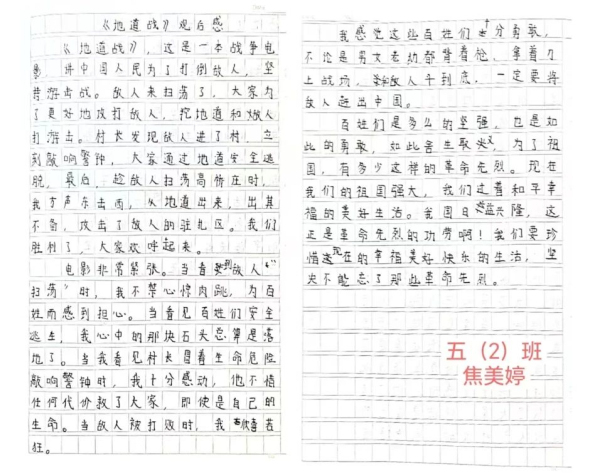 《地道战》观后感
《地道战》，这是一本战争电
影 讲中国人民为了打倒敌人，坚
持游击战。敌人来扫荡了，大家为
了更好地攻打敌人，挖地道和敌人
打游击。村长发现敌人进了村，立
刻敲响警钟，大家通过地道安全逃
脱，最后，趁敌人扫荡高情在时，
我方声东击西，从地道出来，出其
不备，攻击了敌人的驻扎区。我们
胜利了，大家欢呼起来。
电影非常紧张。当看到敌人“
扫荡”时，我不禁心惊肉跳，为百
姓而感到担心。当看见百姓们安全
逃生，我心中的那块石头总算是落
地了。当我看见村长冒着生命危险
敲响警钟时，我十分感动，他不惜
任何代价救了大家，即使是自己的
生命。当敌人被打败时，我欣喜若
狂。
我感觉这些百姓们十分勇敢，
不论是男女老幼都背着枪，拿着刀
上战场，和敌人干到底，一定要将
敌人赶出中国。
百姓们是多么的坚强，也是如
此的勇敢，如此舍生取义，为了祖
国，有多少这样的革命先烈。现在
我们的祖国强大，我们过着和平幸
福的美好生活。我国日益兴隆，这
正是革命先烈的功劳啊！我们要珍
惜现在的幸福美好快乐的生活，坚
决不能忘了那些革命先烈。
五（2）班
焦美婷